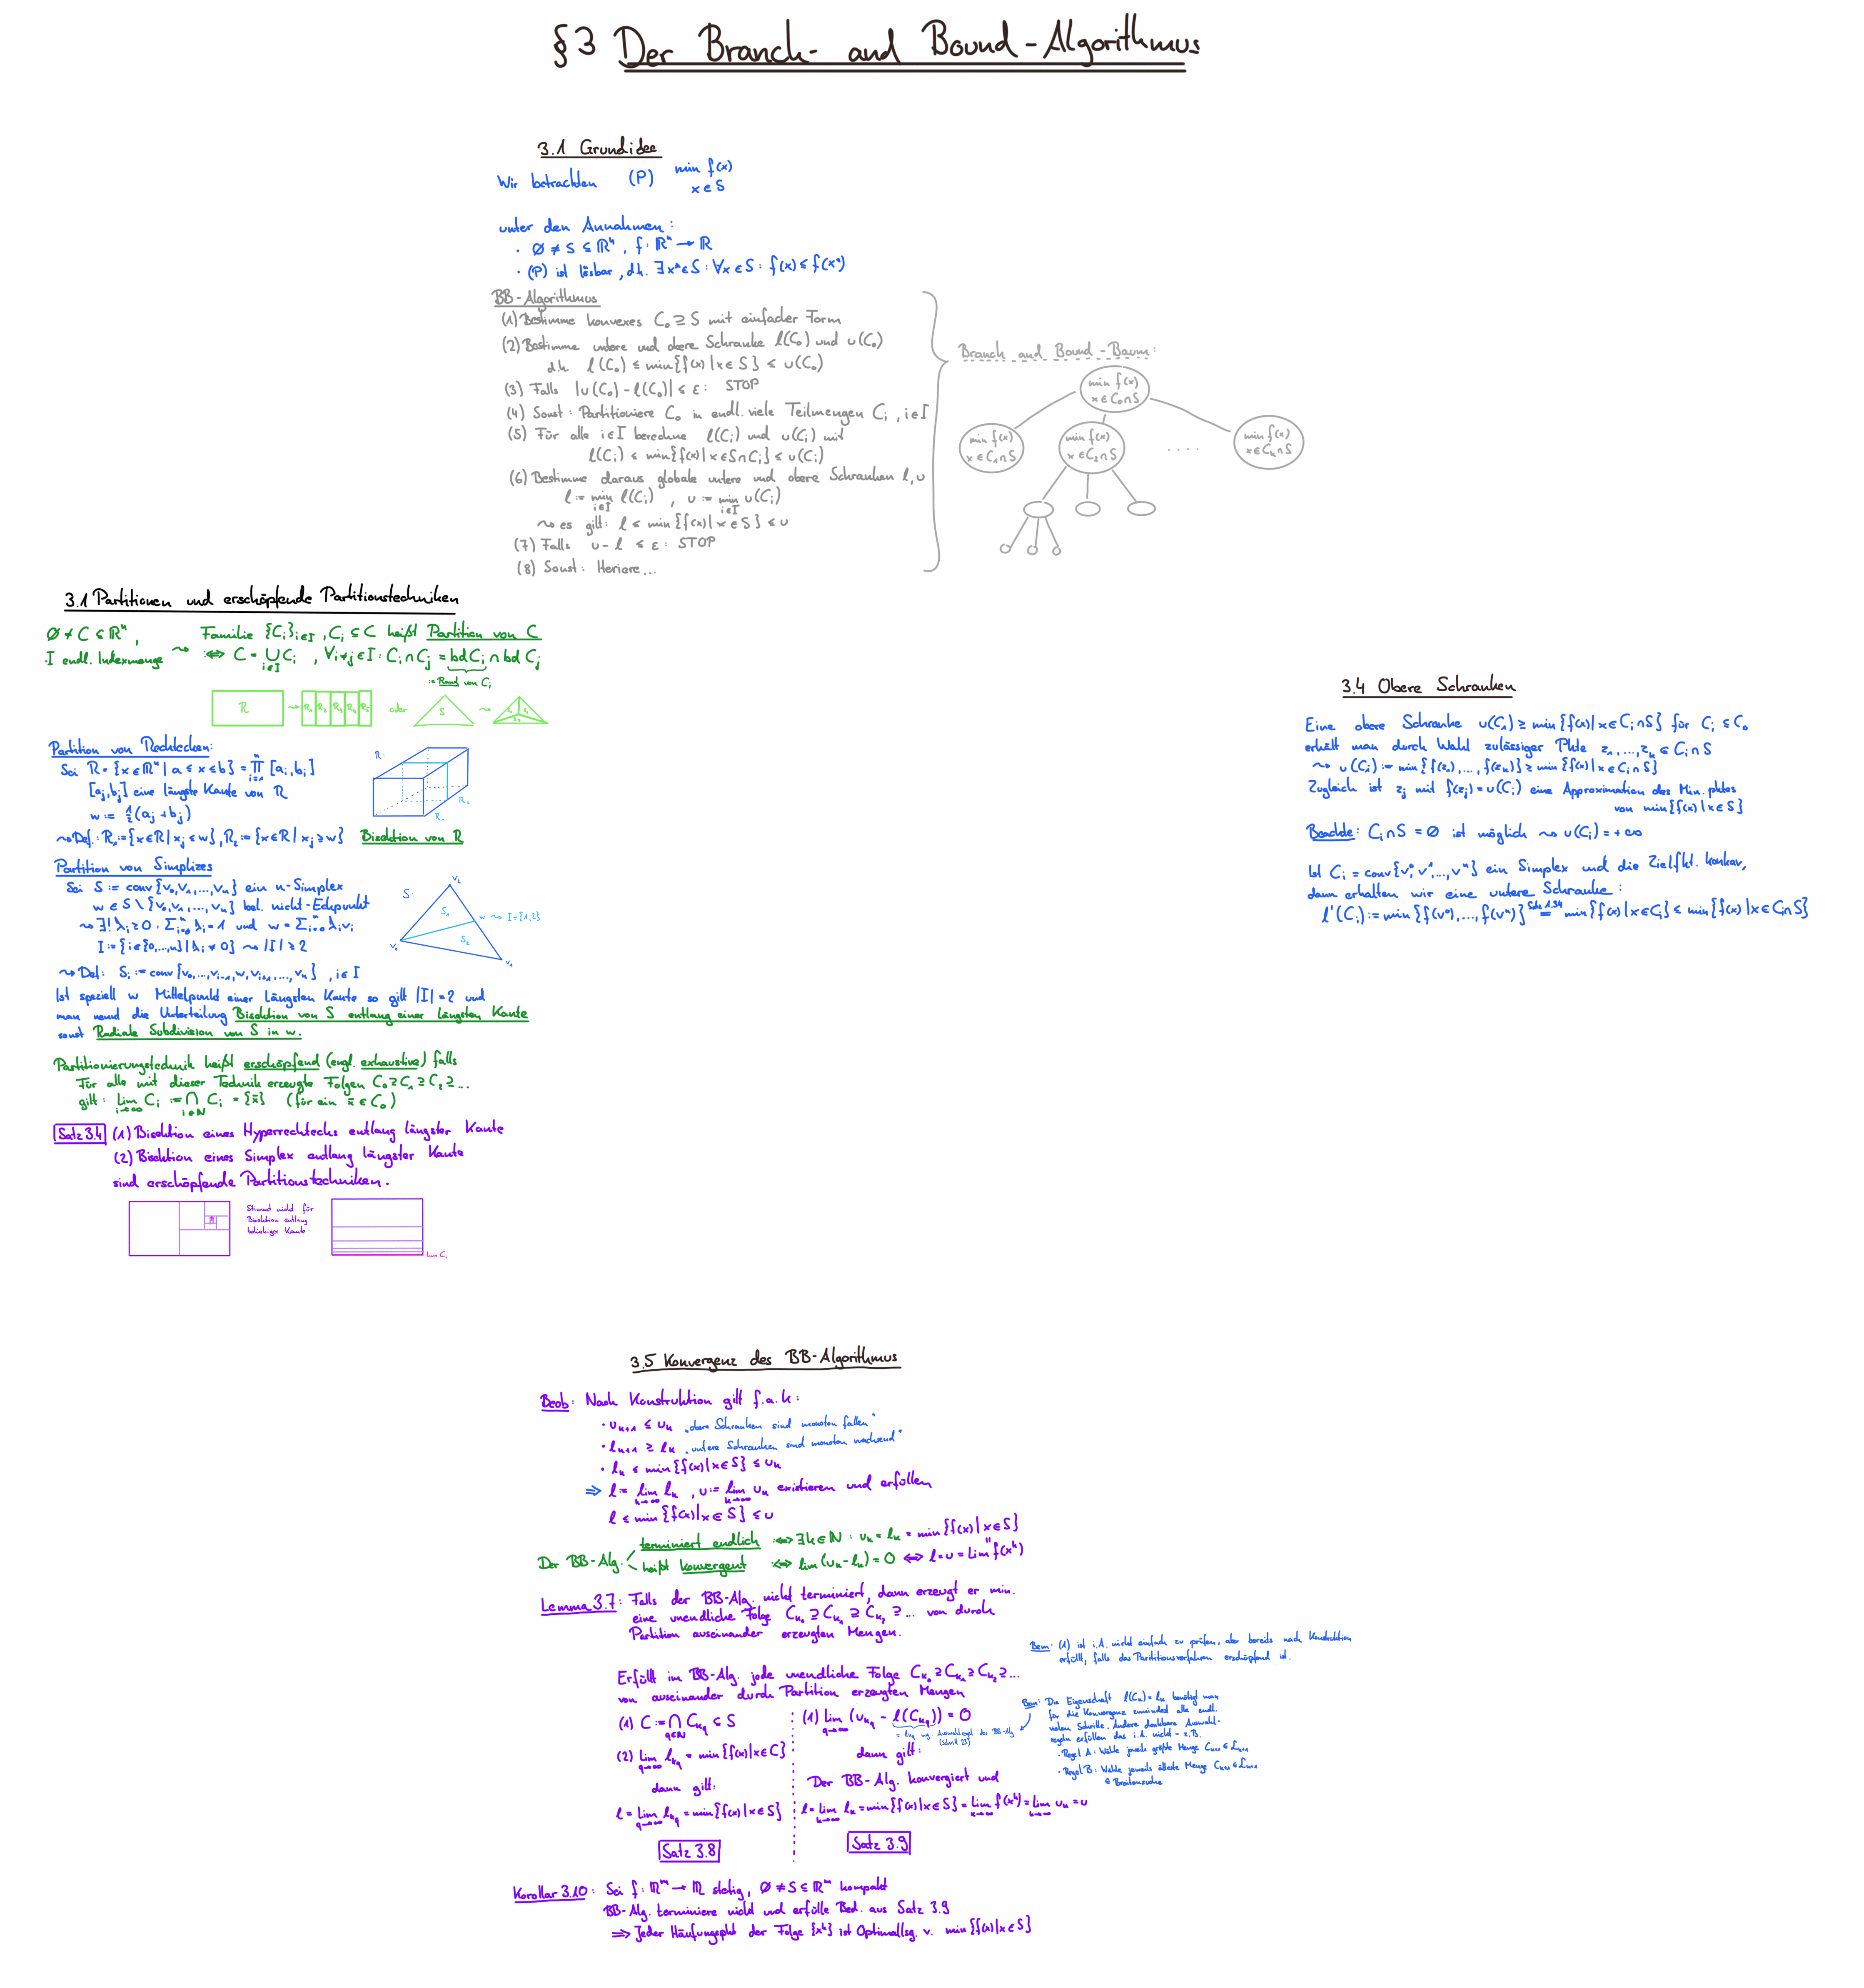 §3 Der Branch- and Bound-Algorithmus
3.1 Grundidee
Wir betrachten (P) min f(x)
x∈S
unter den Annahmen:
· ∅ ≠ S ⊆ ℝⁿ, f: ℝⁿ → ℝ
· (P) ist lösbar, d.h. ∃x*∈S: ∀x∈S: f(x) ≤ f(x*)
BB-Algorithmus
(1) Bestimme konvexes C₀ ⊇ S mit einfacher Form
(2) Bestimme untere und obere Schranke l(C₀) und u(C₀)
d.h. l(C₀) ≤ min{f(x) | x∈S} ≤ u(C₀)
(3) Falls |u(C₀) - l(C₀)| ≤ ε: STOP
(4) Sonst: Partitioniere C₀ in endl. viele Teilmengen Cᵢ, i∈I
(5) Für alle i∈I berechne l(Cᵢ) und u(Cᵢ) mit
l(Cᵢ) ≤ min{f(x) | x∈S∩Cᵢ} ≤ u(Cᵢ)
(6) Bestimme daraus globale untere und obere Schranken l, u
l := min l(Cᵢ), u := min u(Cᵢ)
i∈I i∈I
⇝ es gilt: l ≤ min{f(x) | x∈S} ≤ u
(7) Falls u - l ≤ ε: STOP
(8) Sonst: Iteriere...
Branch and Bound-Baum:
min f(x)
x∈C₀∩S
min f(x)
x∈C₁∩S
min f(x)
x∈C₂∩S
....
min f(x)
x∈Cₖ∩S
3.1 Partitionen und erschöpfende Partitionstechniken
∅ ≠ C ⊆ ℝⁿ,
I endl. Indexmenge
⇝ Familie {Cᵢ}ᵢ∈I, Cᵢ ⊆ C heißt Partition von C
:⇔ C = ∪ Cᵢ, ∀i≠j∈I: Cᵢ∩Cⱼ = bd Cᵢ ∩ bd Cⱼ
i∈I
:= Rand von Cᵢ
R ⇝ R₁ R₂ R₃ R₄ R₅ oder S ⇝ S₁ S₂ S₃
Partition von Rechtecken:
Sei R = {x∈ℝⁿ | a ≤ x ≤ b} = ∏ⁿᵢ₌₁ [aᵢ, bᵢ]
[aⱼ, bⱼ] eine längste Kante von R
w := ½(aⱼ + bⱼ)
⇝ Def.: R₁ := {x∈R | xⱼ ≤ w}, R₂ := {x∈R | xⱼ ≥ w} Bisektion von R
R:
R₂
R₁
Partition von Simplizes
Sei S := conv{v₀, v₁, ..., vₙ} ein n-Simplex
w∈S \ {v₀, v₁, ..., vₙ} bel. nicht-Eckpunkt
⇝ ∃! λᵢ ≥ 0: Σⁿᵢ₌₀ λᵢ = 1 und w = Σⁿᵢ₌₀ λᵢvᵢ
I := {i∈{0,...,n} | λᵢ ≠ 0} ⇝ |I| ≥ 2
⇝ Def.: Sᵢ := conv{v₀, ..., vᵢ₋₁, w, vᵢ₊₁, ..., vₙ}, i∈I
S:
v₂
S₁
w ⇝ I = {1,2}
S₂
v₀
v₁
Ist speziell w Mittelpunkt einer längsten Kante so gilt |I| = 2 und
man nennt die Unterteilung Bisektion von S entlang einer längsten Kante
sonst Radiale Subdivision von S in w.
Partitionierungstechnik heißt erschöpfend (engl. exhaustive) falls
Für alle mit dieser Technik erzeugte Folgen C₀ ⊇ C₁ ⊇ C₂ ⊇ ...
gilt: lim Cᵢ := ∩ Cᵢ = {x̄} (für ein x̄∈C₀)
i→∞ i∈ℕ
Satz 3.4 (1) Bisektion eines Hyperrechtecks entlang längster Kante
(2) Bisektion eines Simplex entlang längster Kante
sind erschöpfende Partitionstechniken.
Stimmt nicht für
Bisektion entlang
beliebiger Kante:
lim Cᵢ
3.4 Obere Schranken
Eine obere Schranke u(Cᵢ) ≥ min{f(x) | x∈Cᵢ∩S} für Cᵢ ⊆ C₀
erhält man durch Wahl zulässiger Pkte z₁, ..., zₖ ∈ Cᵢ∩S
⇝ u(Cᵢ) := min{f(z₁), ..., f(zₖ)} ≥ min{f(x) | x∈Cᵢ∩S}
Zugleich ist zⱼ mit f(zⱼ) = u(Cᵢ) eine Approximation des Min.pktes
von min{f(x) | x∈S}
Beachte: Cᵢ∩S = ∅ ist möglich ⇝ u(Cᵢ) = +∞
Ist Cᵢ = conv{v⁰, v¹, ..., vⁿ} ein Simplex und die Zielfkt. konkav,
dann erhalten wir eine untere Schranke:
l'(Cᵢ) := min{f(v⁰), ..., f(vⁿ)} =(Satz 1.34) min{f(x) | x∈Cᵢ} ≤ min{f(x) | x∈Cᵢ∩S}
3.5 Konvergenz des BB-Algorithmus
Beob: Nach Konstruktion gilt f.a. k:
· uₖ₊₁ ≤ uₖ „obere Schranken sind monoton fallen"
· lₖ₊₁ ≥ lₖ „untere Schranken sind monoton wachsend"
· lₖ ≤ min{f(x) | x∈S} ≤ uₖ
⇒ l := lim lₖ, u := lim uₖ existieren und erfüllen
k→∞ k→∞
l ≤ min{f(x) | x∈S} ≤ u
Der BB-Alg.
terminiert endlich :⇔ ∃k∈ℕ: uₖ = lₖ = min{f(x) | x∈S}
heißt konvergent :⇔ lim (uₖ - lₖ) = 0 ⇔ l = u = lim f(xᵏ)
Lemma 3.7: Falls der BB-Alg. nicht terminiert, dann erzeugt er min.
eine unendliche Folge Cₖ₀ ⊇ Cₖ₁ ⊇ Cₖ₂ ⊇ ... von durch
Partition auseinander erzeugten Mengen.
Erfüllt im BB-Alg. jede unendliche Folge Cₖ₀ ⊇ Cₖ₁ ⊇ Cₖ₂ ⊇ ...
von auseinander durch Partition erzeugten Mengen
(1) C := ∩ Cₖq ⊆ S
q∈ℕ
(2) lim lₖq = min{f(x) | x∈C}
q→∞
dann gilt:
l = lim lₖq = min{f(x) | x∈S}
q→∞
Satz 3.8
(1) lim (uₖq - l(Cₖq)) = 0
q→∞
= lₖq wg. Auswahlregel des BB-Alg.
dann gilt:
Der BB-Alg. konvergiert und
l = lim lₖ = min{f(x) | x∈S} = lim f(xᵏ) = lim uₖ = u
k→∞ k→∞ k→∞
Satz 3.9
Bem: (1) ist i.A. nicht einfach zu prüfen, aber bereits nach Konstruktion
erfüllt, falls das Partitionsverfahren erschöpfend ist.
Bem: Die Eigenschaft l(Cₖ) = lₖ benötigt man
für die Konvergenz zumindest alle endl.
vielen Schritte. Andere denkbare Auswahl-
regeln erfüllen das i.A. nicht - z.B.
· Regel A: Wähle jeweils größte Menge Cₖ₊₁ ∈ 𝓛ₖ₊₁
· Regel B: Wähle jeweils älteste Menge Cₖ₊₁ ∈ 𝓛ₖ₊₁
Breitensuche
Korollar 3.10: Sei f: ℝⁿ → ℝ stetig, ∅ ≠ S ⊆ ℝⁿ kompakt
BB-Alg. terminiere nicht und erfülle Bed. aus Satz 3.9
⇒ Jeder Häufungspkt der Folge {xᵏ} ist Optimallsg. v. min{f(x) | x∈S}